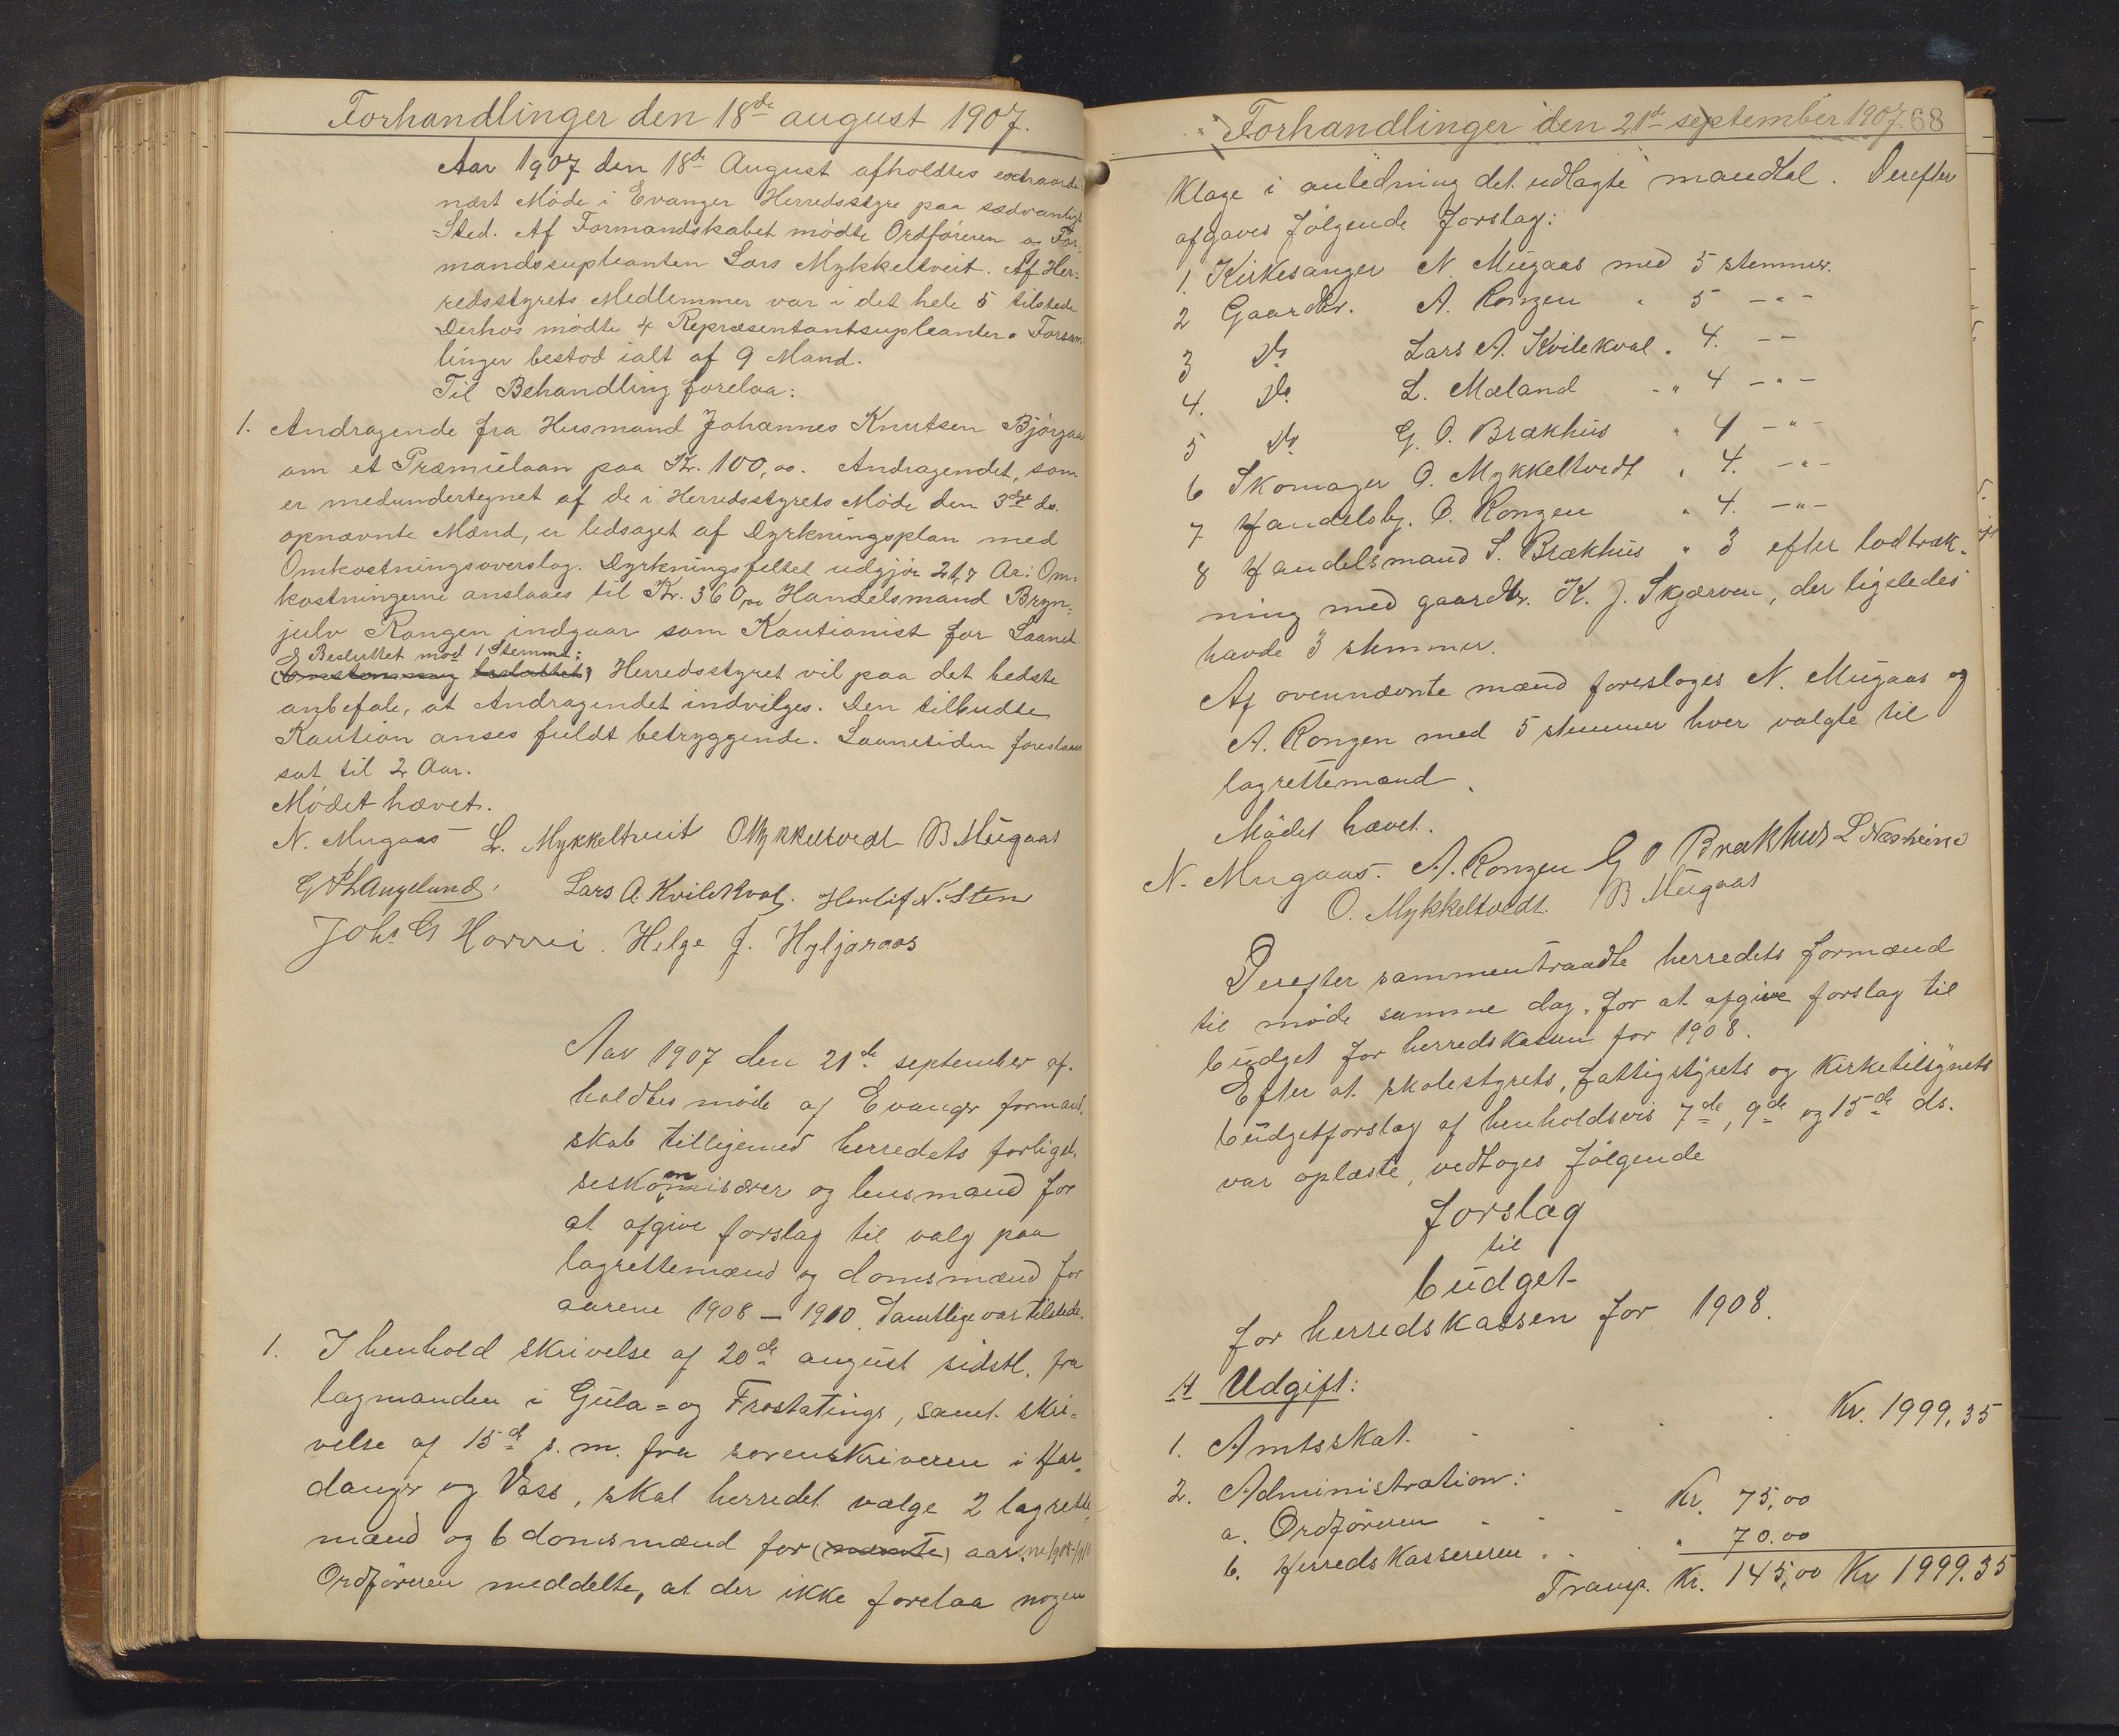 Forhandlinger den 18de august 1907.
Aar 1907 den 18de August afholdtes extraordi-
nært Møde i Evanger Herredsstyre paa sædvanligt
Sted. Af Formandskabet mødte Ordføreren og For-
mandssupleanten Lars Mykkeltveit. Af Her-
redsstyrets Medlemmer var i det hele 5 tilstede
Derhos mødte 4 Repræsentantsupleanter. Forsam-
linger bestod ialt af 9 Mand.
Til Behandling forelaa:
1. Andragende fra Husmand Johannes Knutsen Bjørgaas
om et Præmielaan paa Kr. 100,00. Andragendet, som
er medundertegnet af de i Herredsstyrets Møde den 3die ds.
opnævnte Mænd, er ledsaget af Dyrkningsplan med
Omkostningsoverslag. Dyrkningsfeltet udgjør 21,7 Ar: Om-
kostningerne anslaaes til Kr. 360,00 Handelsmand Bryn-
julv Rongen indgaar som Kautionist for Laanet
Besluttet mod 1 Stemme:
(Enstemmig besluttet) Herredsstyret vil paa det bedste
anbefale, at Andragendet indvilges. Den tilbudte
Kaution anses fuldt betryggende. Laanetiden foreslaaes
sat til 2 Aar.
Mødet hævet.
N. Mugaas L. Mykkeltveit O Mykkeltvedt B Mügaas
Lars A. Kvilekval. Herlif N. Sten
Johs G Horvei. Helge J. Hyljaraas
Aar 1907 den 21de september af-
holdtes møde af Evanger formand-
skab tilligemed herredets forligel-
seskommisærer og lensmand for
at afgive forslag til valg paa
lagrettemænd og domsmænd for
aarene 1908 – 1910. Samtlige var tilstede.
1. I henhold skrivelse af 20de august sidstl. fra
lagmanden i Gula- og Frostatings, samt skri-
velse af 15de s.m. fra sorenskriveren i Har-
danger og Voss, skal herredet vælge 2 lagrette-
mænd og 6 domsmænd for (nævnte) aarene 1908-1910
Ordføreren meddelte, at der ikke forelaa nogen
Forhandlinger den 21de september 1907. 68
Klage i anledning det udlagte mandtal. Derefter
afgaves følgende forslag:
1. Kirkesanger N. Mügaas med 5 stemmer.
2 Gaardbr. A. Rongen " 5 – " –
3 Do Lars A. Kvilekval " 4. – –
4. Do L. Mæland – " 4 – " –
5 Do G. O. Brækhüs " 4 – " –
6 Skomager O. Mykkeltvedt " 4. – " –
7 Handelsbj. O. Rongen " 4. – " –
8 Handelsmand S. Brækhüs " 3 efter lodtræk-
ning med gaardbr. K. J. Skjærven, der ligeledes
havde 3 stemmer.
Af ovennævnte mænd foresloges N. Mügaas og
A. Rongen med 5 stemmer hver valgte til
lagrettemænd.
Mødet hævet.
N. Mugaas. A. Rongen G O Brækhus L Næsheim
O. Mykkeltvedt. B Mügaas
Derefter sammentraadte herredets formænd
til møde samme dag, for at afgive forslag til
büdget for herredskassen for 1908.
Efter at skolestyrets, fattigstyrets og kirketilsynets
büdgetforslag af henholdsvis 7de, 9de og 15de ds.
var oplæste, vedtoges følgende
forslag
til
büdget
for herredskassen for 1908.
A Udgift:
1. Amtsskat. Kr. 1999,35
2. Administration:
a. Ordføreren Kr. 75,00
b. Herredskassereren " 70.00
Transp. Kr. 145,00 Kr 1999.35